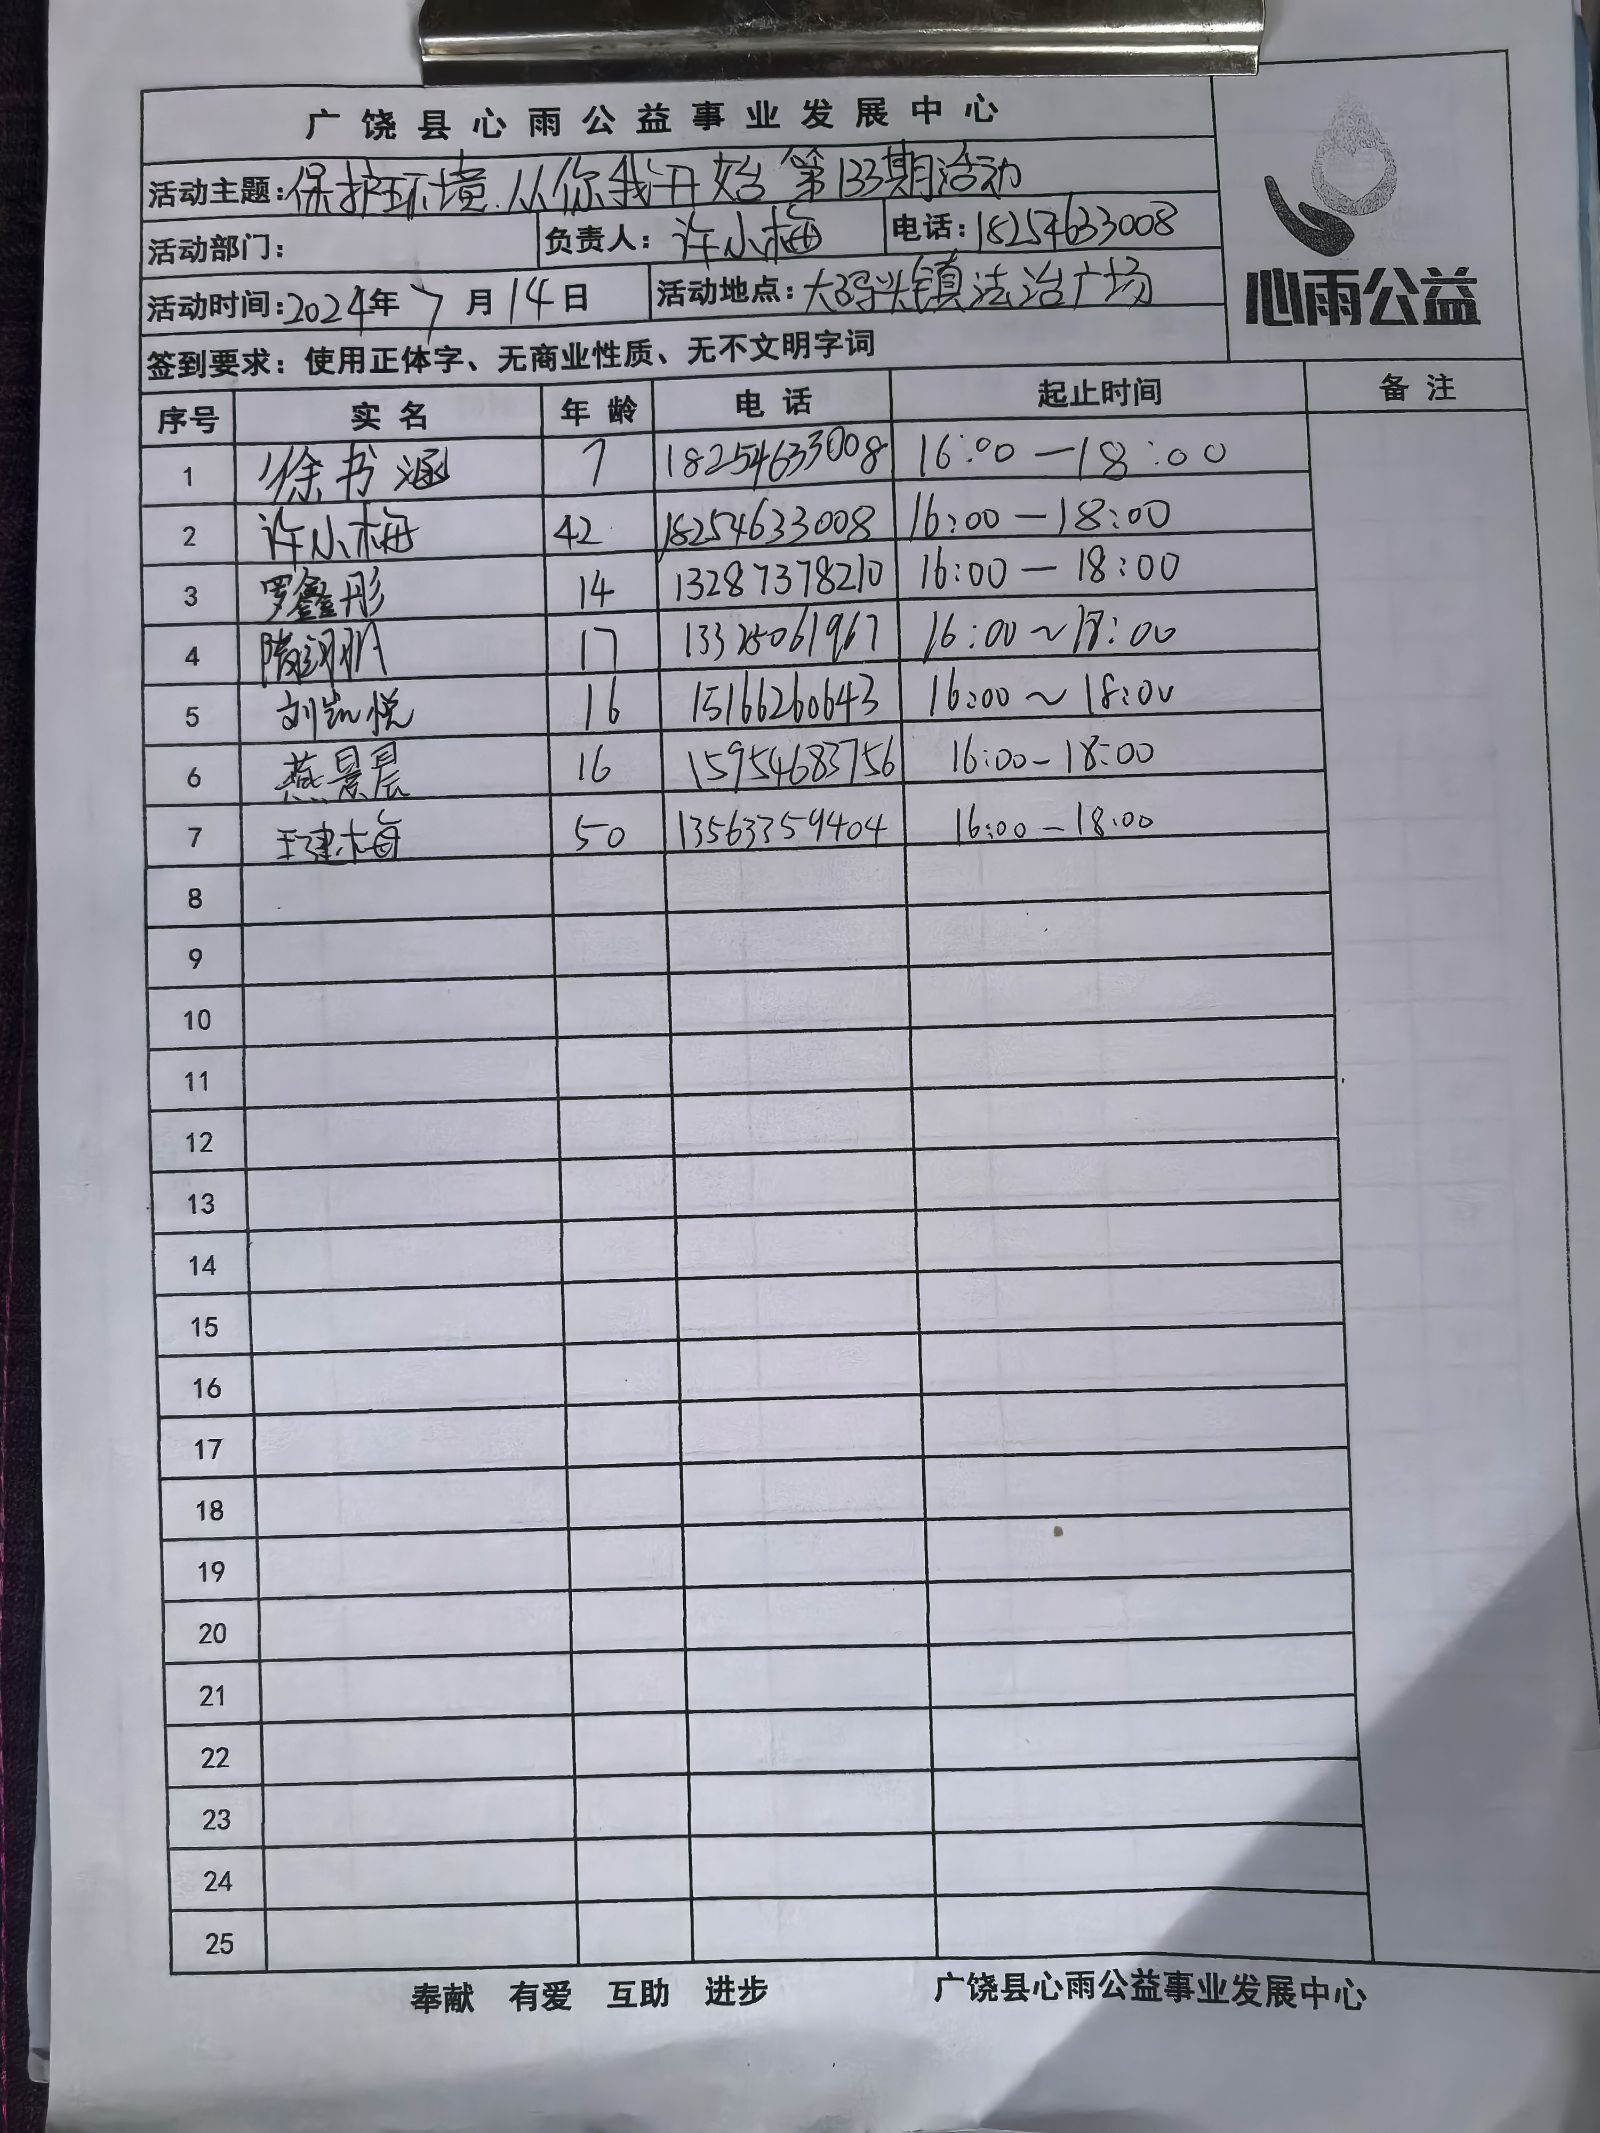 广饶县心雨公益事业发展中心
活动主题：保护环境.从你我开始 第133期活动
活动部门： 负责人：许小梅 电话：18254633008
活动时间：2024年7月14日 活动地点：大码头镇法治广场
心雨公益
签到要求：使用正体字、无商业性质、无不文明字词
序号 实名 年龄 电话 起止时间 备注
1 徐书涵 7 18254633008 16:00—18:00
2 许小梅 42 18254633008 16:00—18:00
3 罗鑫彤 14 13287378210 16:00—18:00
4 17 13325061967 16:00～18:00
5 刘凯悦 16 15166260643 16:00～18:00
6 燕景晨 16 15954683756 16:00-18:00
7 王建梅 50 13563359404 16:00—18:00
8
9
10
11
12
13
14
15
16
17
18
19
20
21
22
23
24
25
奉献 有爱 互助 进步 广饶县心雨公益事业发展中心